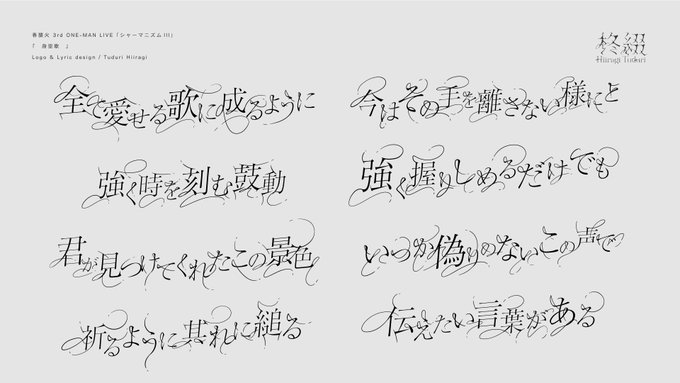 春猿火 3rd ONE-MAN LIVE「シャーマニズムIII」
『 身空歌 』
Logo & Lyric design / Tuduri Hiiragi
柊綴
Hiiragi Tuduri
全て愛せる歌に成るように
強く時を刻む鼓動
君が見つけてくれたこの景色
祈るように其れに縋る
今はその手を離さない様にと
強く握りしめるだけでも
いつか偽りのないこの声で
伝えたい言葉がある